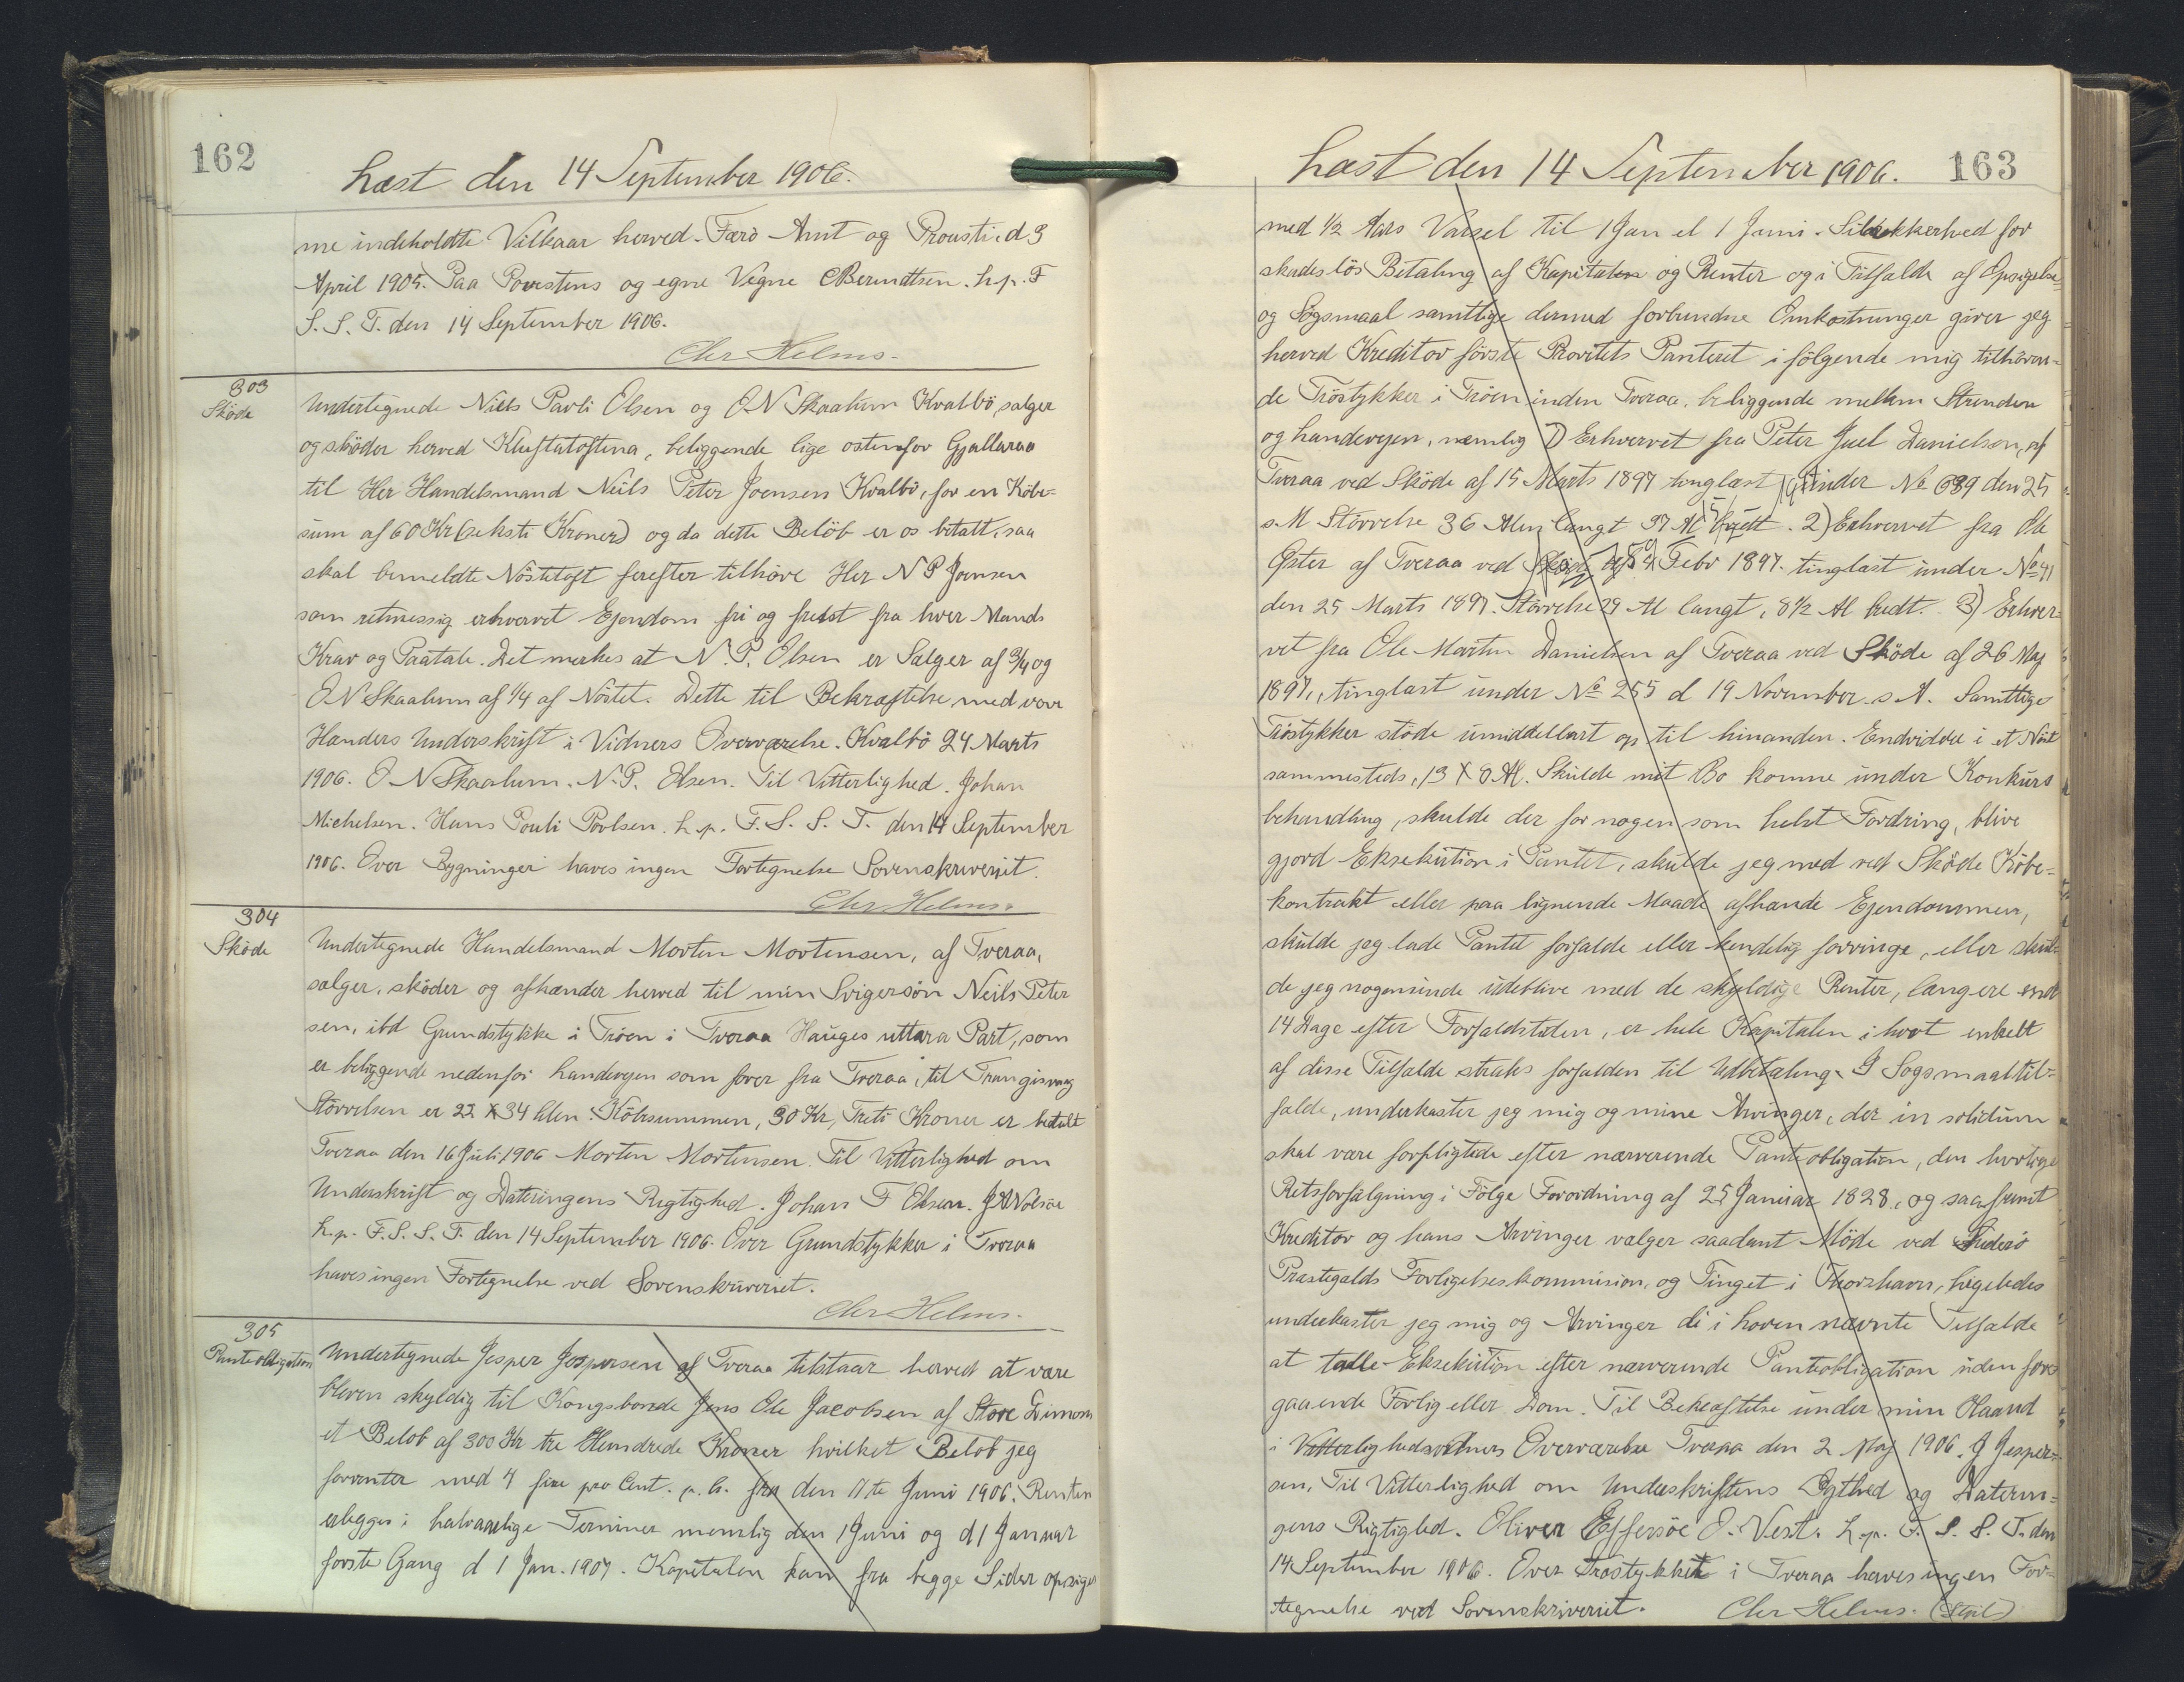 162
Læst den 14 September 1906.
me indeholdte Vilkaar herved. Færø Amt og Prousti. d 3
April 1905. Paa Provstens og egne Vegne CBerndtsen. L. p. F
S. S. T. den 14 September 1906.
Chr Helms.
303
Sköde
Undertegnede Niels Pavli Olsen og O N Skaalum Kvalbö, sælger
og sköder herved Kluftatoftina, beliggende lige østenfor Gjallaraa
til Her Handelsmand Niels Peter Joensen Kvalbö, for en Köbe-
sum af 60 Kr (seksti Kroner) og da dette Belöb er os betalt, saa
skal bemeldte Nöstetoft herefter tilhöre Her N P Joensen
som retmessig erhvervet Ejendom fri og frelst fra hver Mands
Krav og Paatale. Det merkes at N. P. Olsen er Sælger af 3/4 og
O N Skaalum af 1/4 af Nöstet. Dette til Bekræftelse med vore
Hænders Underskrift i Vidners Overværelse. Kvalbö 24 Marts
1906. O N Skaalum. N. P. Olsen. Til Vitterlighed. Johan
Michelsen. Hans Pouli Poulsen. L. p. F. S. S. T. den 14 September
1906. Over Bygninger haves ingen Fortegnelse Sorenskriveriet.
Chr Helms.
304
Sköde
Undertegnede Handelsmand Morten Mortensen, af Tveraa,
sælger, sköder og afhænder herved til min Svigersön Neils Peter
sen, ibd Grundstykke i Tröen i Tveraa Hauges uttara Part, som
er beliggende nedenfor Landevejen som förer fra Tveraa, til Trangisvaag
Störrelsen er 22 X 34 Alen. Köbesummen, 30 Kr, Treti Kroner er betalt
Tveraa den 16 Juli 1906 Morten Mortensen. Til Vitterlighed om
Underskrift og Dateringens Rigtighed. Johan F Olsen. J A Nolsøe
L. p. F. S. S. T. den 14 September 1906. Over Grundstykker i Tveraa
haves ingen Fortegnelse ved Sorenskriveriet.
Chr Helms.
305
Panteobligation
Undertegnede Jesper Jespersen af Tveraa tilstaar herved at være
bleven skyldig til Kongsbonde Jens Ole Jacobsen af Store Dimon
et Belöb af 300 Kr tre Hundrede Kroner hvilket Belöb jeg
forrenter med 4 fire pro Cent. p. A. fra den 11te Juni 1906. Renten
erlægges i halvaarlige Terminer nemlig den 1 Juni og d 1 Januar
förste Gang d 1 Jan. 1907. Kapitalen kan fra begge Sider opsiges
Læst den 14 September 1906.
163
med 1/2 Aars Varsel til 1 Jan el 1 Juni. Til Sikkerhed for
skadeslös Betaling af Kapitalen og Renter og i Tilfælde af Opsigelse
og Sögsmaal samtlige dermed forbundne Omkostninger giver jeg
herved Kreditor förste Prioritets Panteret i fölgende mig tilhören-
de Tröstykker i Tröen inden Tveraa, beliggende mellem Stranden
og Landevejen, nemlig 1) Erhvervet fra Peter Juel Danielsen, af
Tveraa ved Sköde af 15 Marts 1897 tinglæst under No 639 den 25
s. M Störrelse 36 Alen langt 37 Al bredt. 2) Erhvervet fra Ole
Öster af Tveraa ved Febr 1897. tinglæst under No 41
den 25 Marts 1897. Störrelse 29 Al langt, 8 1/2 Al bredt. 3) Erhver-
vet fra Ole Martin Danielsen af Tveraa ved Sköde af 26 Maj
1897, tinglæst under No 255 d 19 November s. A. Samtlige
Tröstykker stöde umiddelbart op til hinanden. Endvidere i et Nöst
sammesteds, 13 X 8 Al. Skulde mit Bo komme under Konkurs
behandling, skulde der for nogen som helst Fordring, blive
gjord Eksekution i Pantet, skulde jeg med ved Sköde Köbe-
kontrakt eller paa lignende Maade afhænde Ejendommen,
skulde jeg lade Pantet forfalde eller kendelig forringe, eller skul-
de jeg nogensinde udeblive med de skyldige Renter, længere end
14 Dage efter Forfaldstiden, er hele Kapitalen i hvert enkelt
af disse Tilfælde straks forfalden til Udbetaling. I Sögsmaaltil-
fælde, underkaster jeg mig og mine Arvinger, der in solidum
skal være forpligtede efter nærværende Panteobligation, den hurtige
Retsforfölgning i Fölge Forordning af 25 Januar 1828, og saafremt
Kreditor og hans Arvinger vælger saadant Möde ved Suderö
Præstegælds Forligelseskommision, og Tinget i Thorshavn, ligeledes
underkaster jeg mig og Arvinger de i loven nævnte Tilfælde
at taale Eksekution efter nærværende Panteobligation uden fore
gaaende Forlig eller Dom. Til Bekræftelse under min Haand
i Vitterlighedsvidners Overværelse Tveraa den 2 Maj 1906. J Jesper-
sen. Til Vitterlighed om Underskriftens Ægthed og Daterin-
gens Rigtighed. Oliver Effersöe O. Vest. L. p. F. S. S. T. den
14 September 1906. Over Tröstykket i Tveraa haves ingen For-
tegnelse ved Sorenskriveriet. Chr Helms.